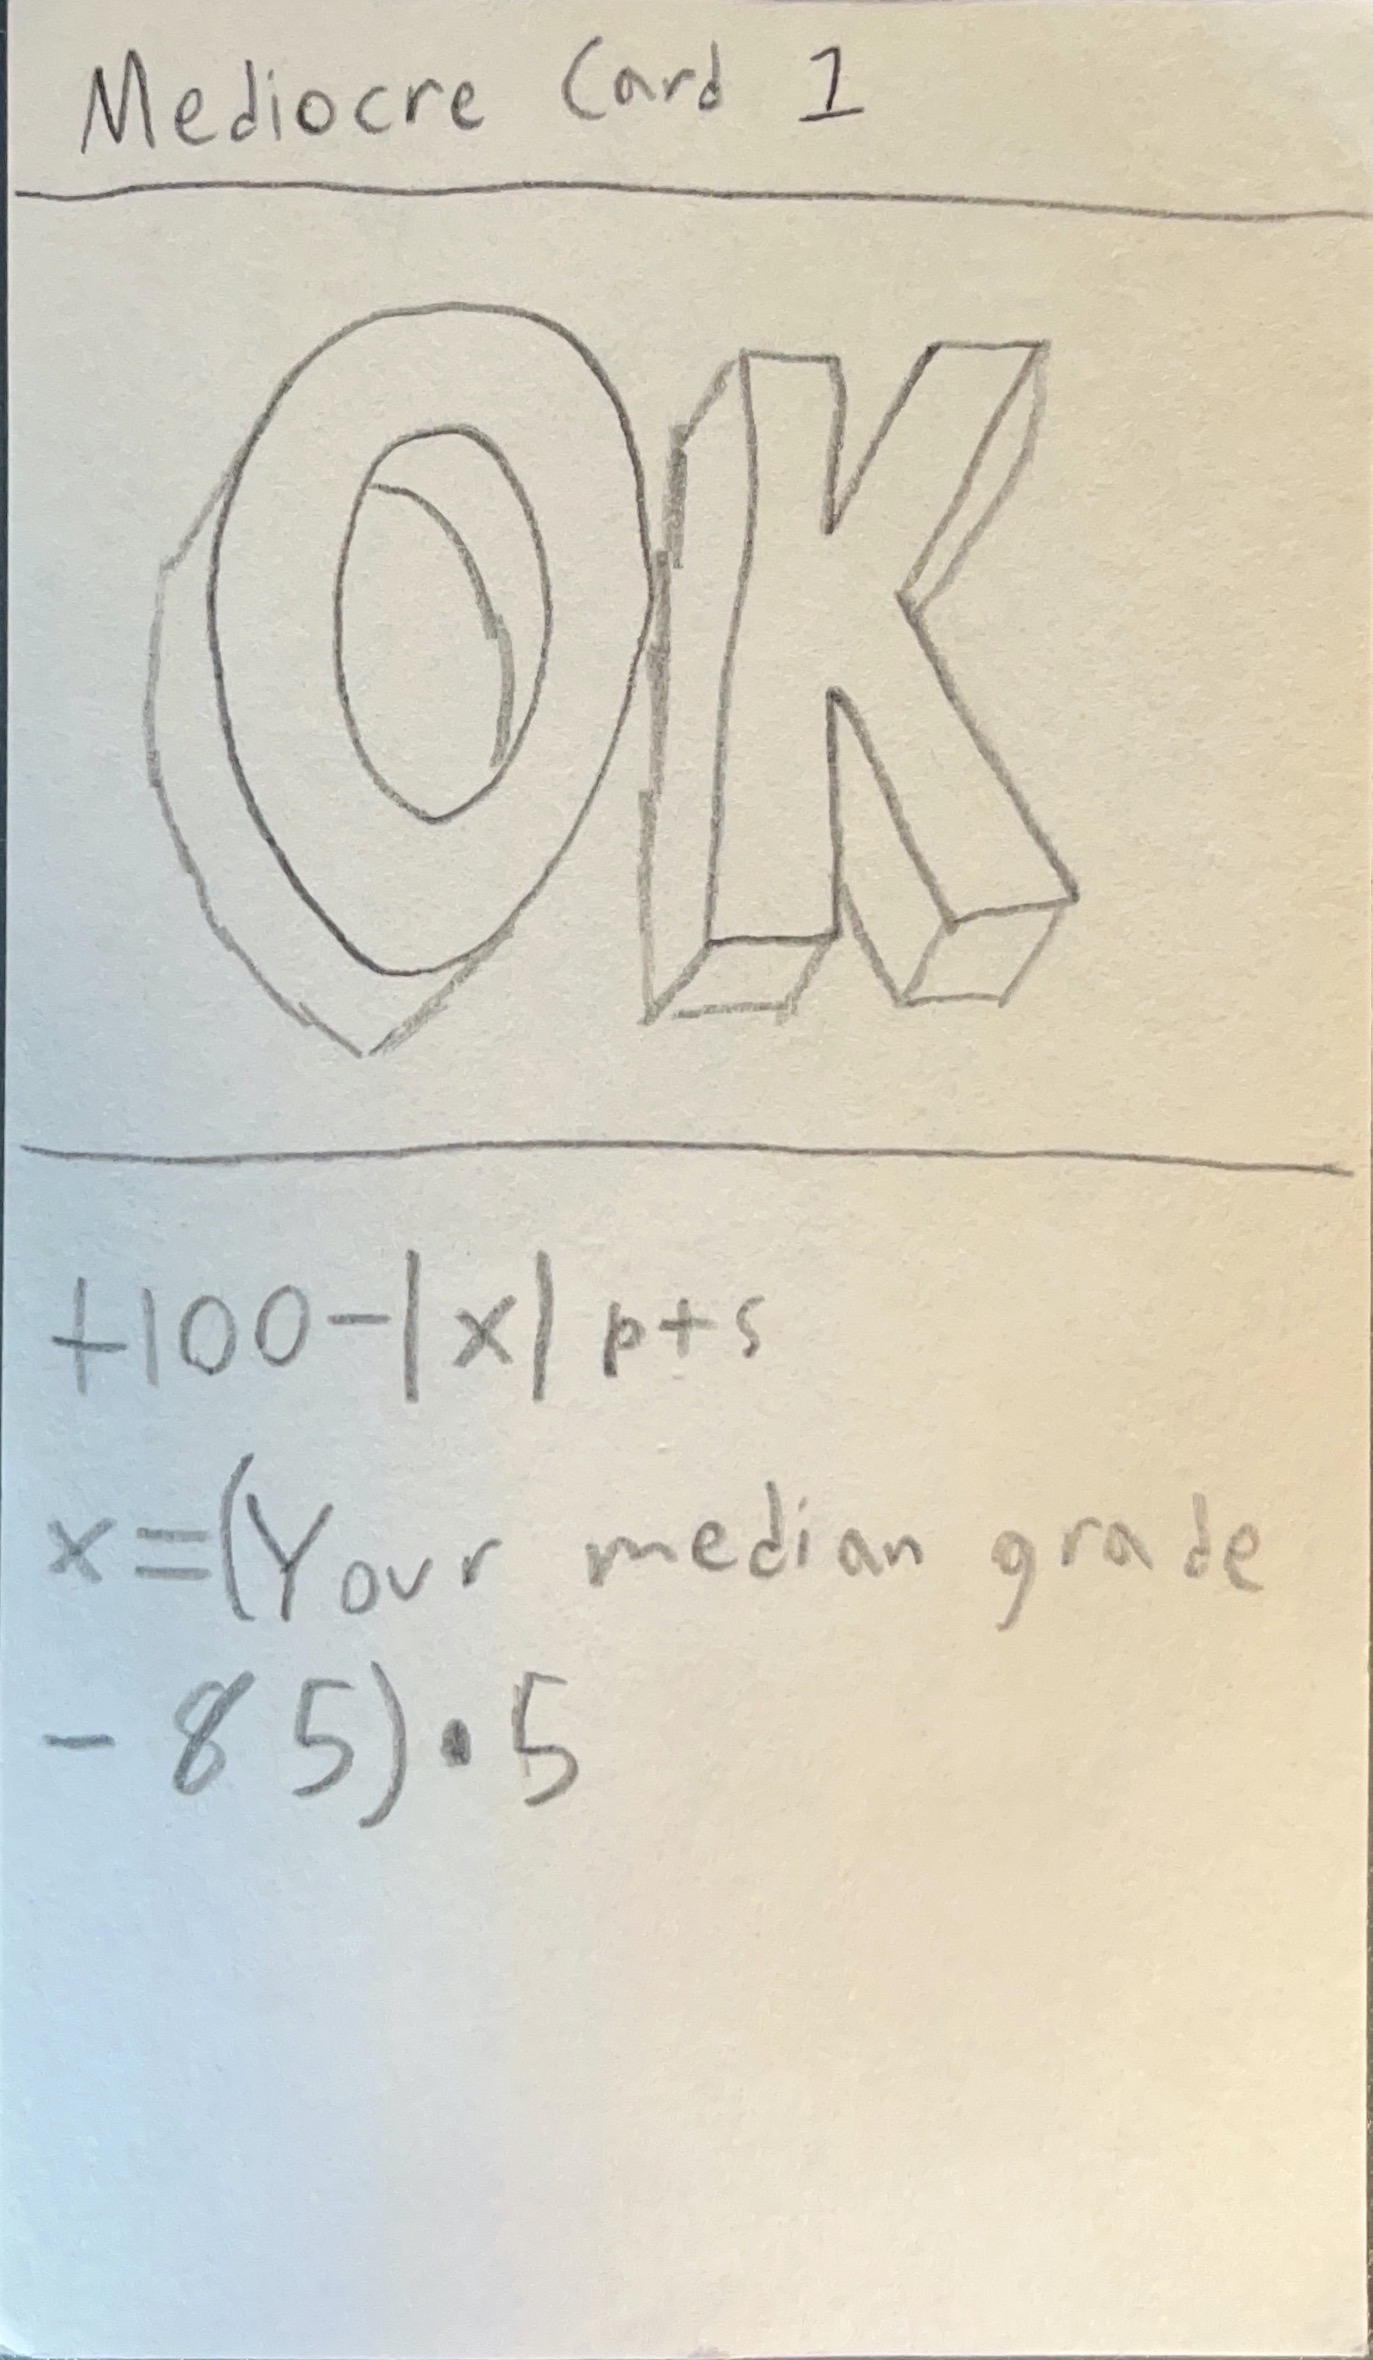 Mediocre Card 1
OK
+100-|x| pts
x=(Your median grade
-85)•5